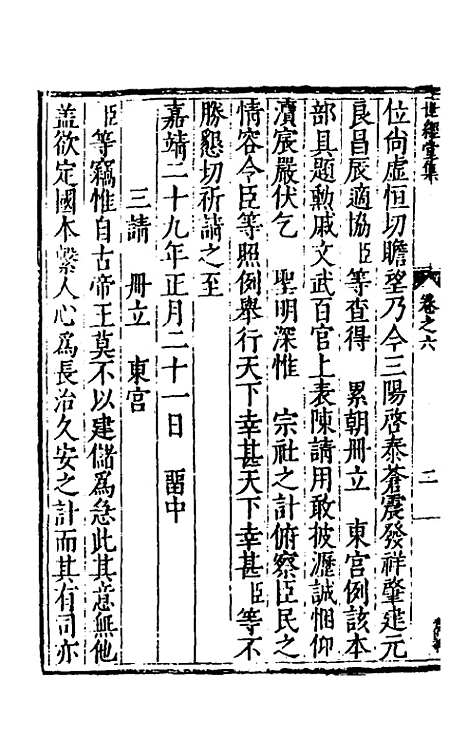 世經堂集 卷之六 二
位尚虛恒切瞻望乃今三陽啓泰蒼震發祥肇建元
良昌辰適協臣等查得 累朝冊立 東宮例該本
部具題勳戚文武百官上表陳請用敢披瀝誠悃仰
瀆宸嚴伏乞 聖明深惟 宗社之計俯察臣民之
情容令臣等照例舉行天下幸甚天下幸甚臣等不
勝懇切祈請之至
嘉靖二十九年正月二十一日 畱中
三請 冊立 東宮
臣等竊惟自古帝王莫不以建儲爲急此其意無他
盖欲定國本繫人心爲長治久安之計而其有司亦